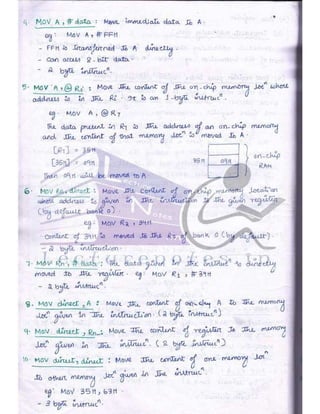 4. MOV A, # data : Move immediate data to A.
eg : MOV A, # FFH
- FFH is transferred to A directly.
- Can access 8-bit data.
- 2 byte instrucⁿ.
5. MOV A, @ Ri : Move the content of the on-chip memory locⁿ whose
address is in the Ri. It is an 1-byte instrucⁿ.
eg. MOV A, @ R7
The data present in R7 is the address of an on-chip memory
and the content of that memory locⁿ is moved to A.
[R7] = 35H
[35H] = 09H
35H 09H
on-chip
RAM
Then 09H will be moved to A
6. MOV Rn, direct : Move the content of on-chip memory location
whose address is given in the instruction to the given register
(by default bank 0)
eg : MOV R2, 34H
- Content of 34H is moved to the R2 of bank 0 (by default).
- 2 byte instruction.
7. MOV Rn, # data : The data given in the instrucⁿ is directly
moved to the register. eg : MOV R2, # 34H
- 2 byte instrucⁿ.
8. MOV direct, A : Move the content of on-chip A to the memory
locⁿ given in the instruction. (2 byte instrucⁿ)
9. MOV direct, Rn : Move the content of register to the memory
locⁿ given in the instrucⁿ. (2 byte instrucⁿ)
10. MOV direct, direct : Move the content of one memory locⁿ
to other memory locⁿ given in the instrucⁿ.
eg : MOV 35H, 63H.
- 3 byte instrucⁿ.